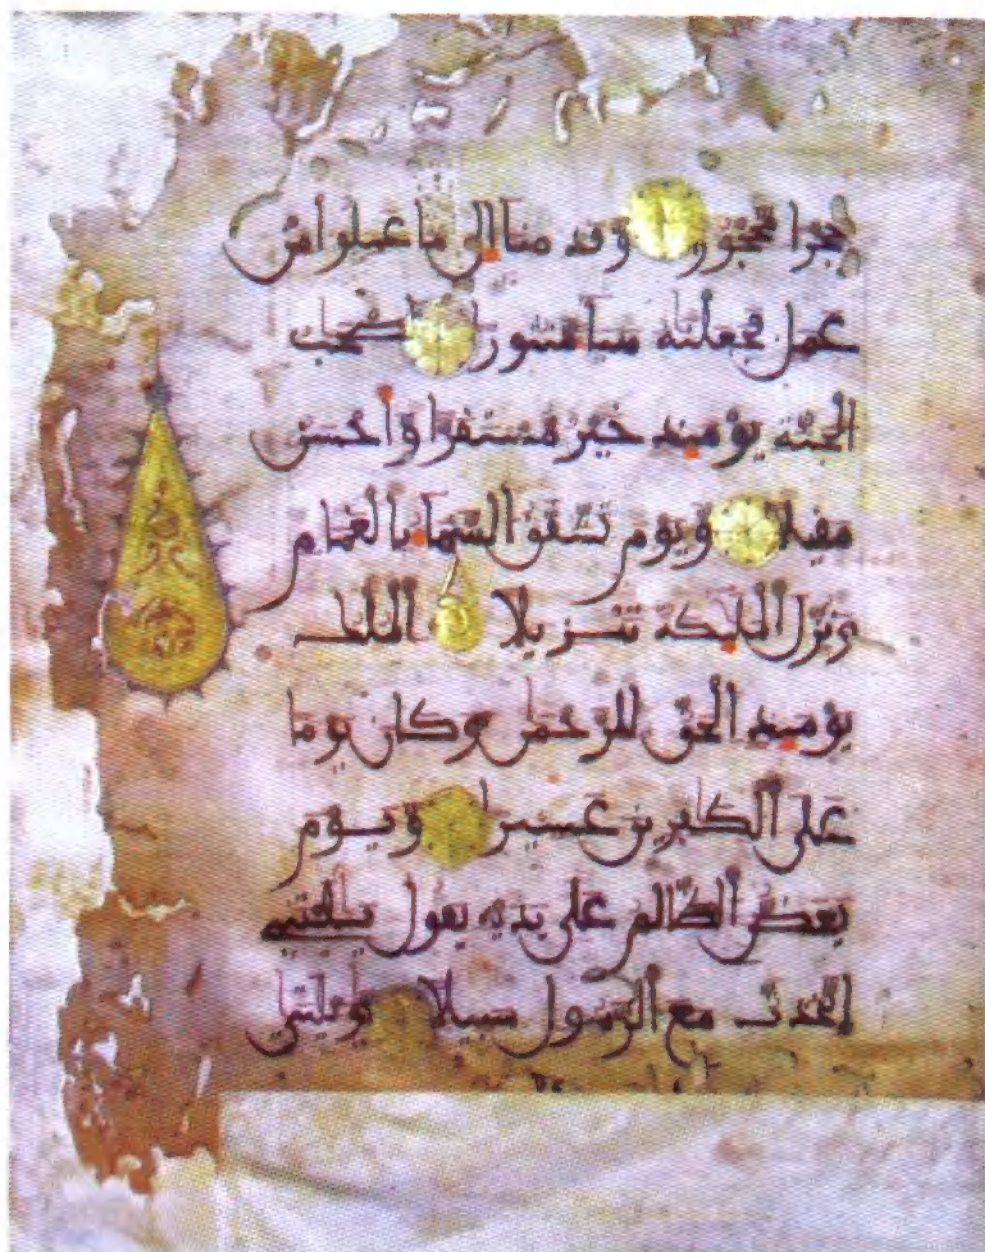 حجرا محجورا وقدمنا إلى ما عملوا من
عمل فجعلناه هباء منثورا أصحب
الجنة يومئذ خير مستقرا وأحسن
مقيلا ويوم تشقق السماء بالغمام
ونزل الملئكة تنزيلا الملك
يومئذ الحق للرحمن وكان يوما
على الكفرين عسيرا ويوم
يعض الظالم على يديه يقول يليتني
اتخذت مع الرسول سبيلا يويلتى